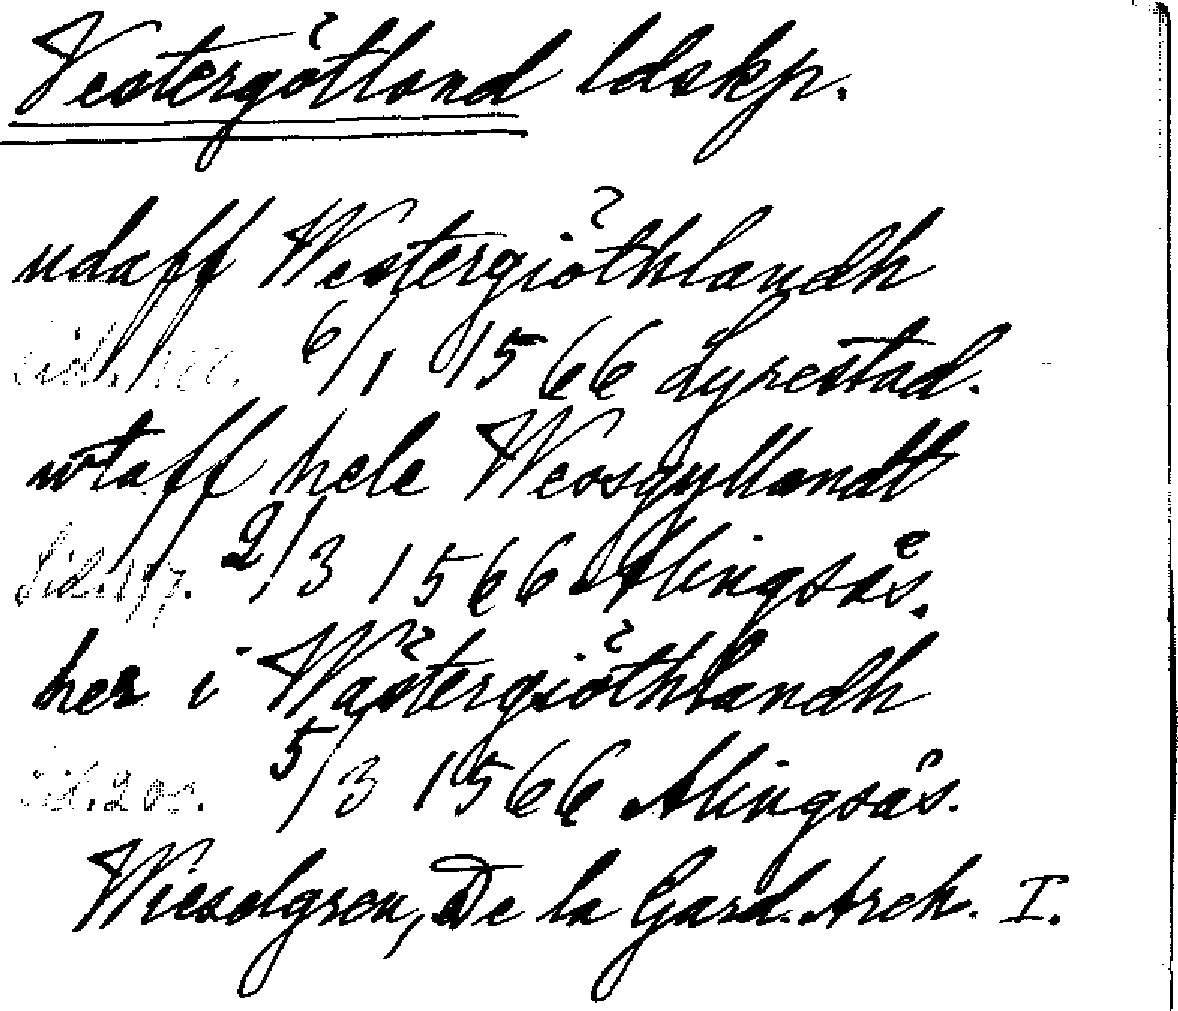 Vestergötland ldskp.
udaff Westergiöthlandh
6/1 1566 Lyrestad.
wtaff hele Wessgyllandt
Sid. 197. 2/3 1566 Alingsås.
her i Wästergiöthlandh
Sid. 5/3 1566 Alingsås.
Wieselgren, De la Gard. Arch. I.